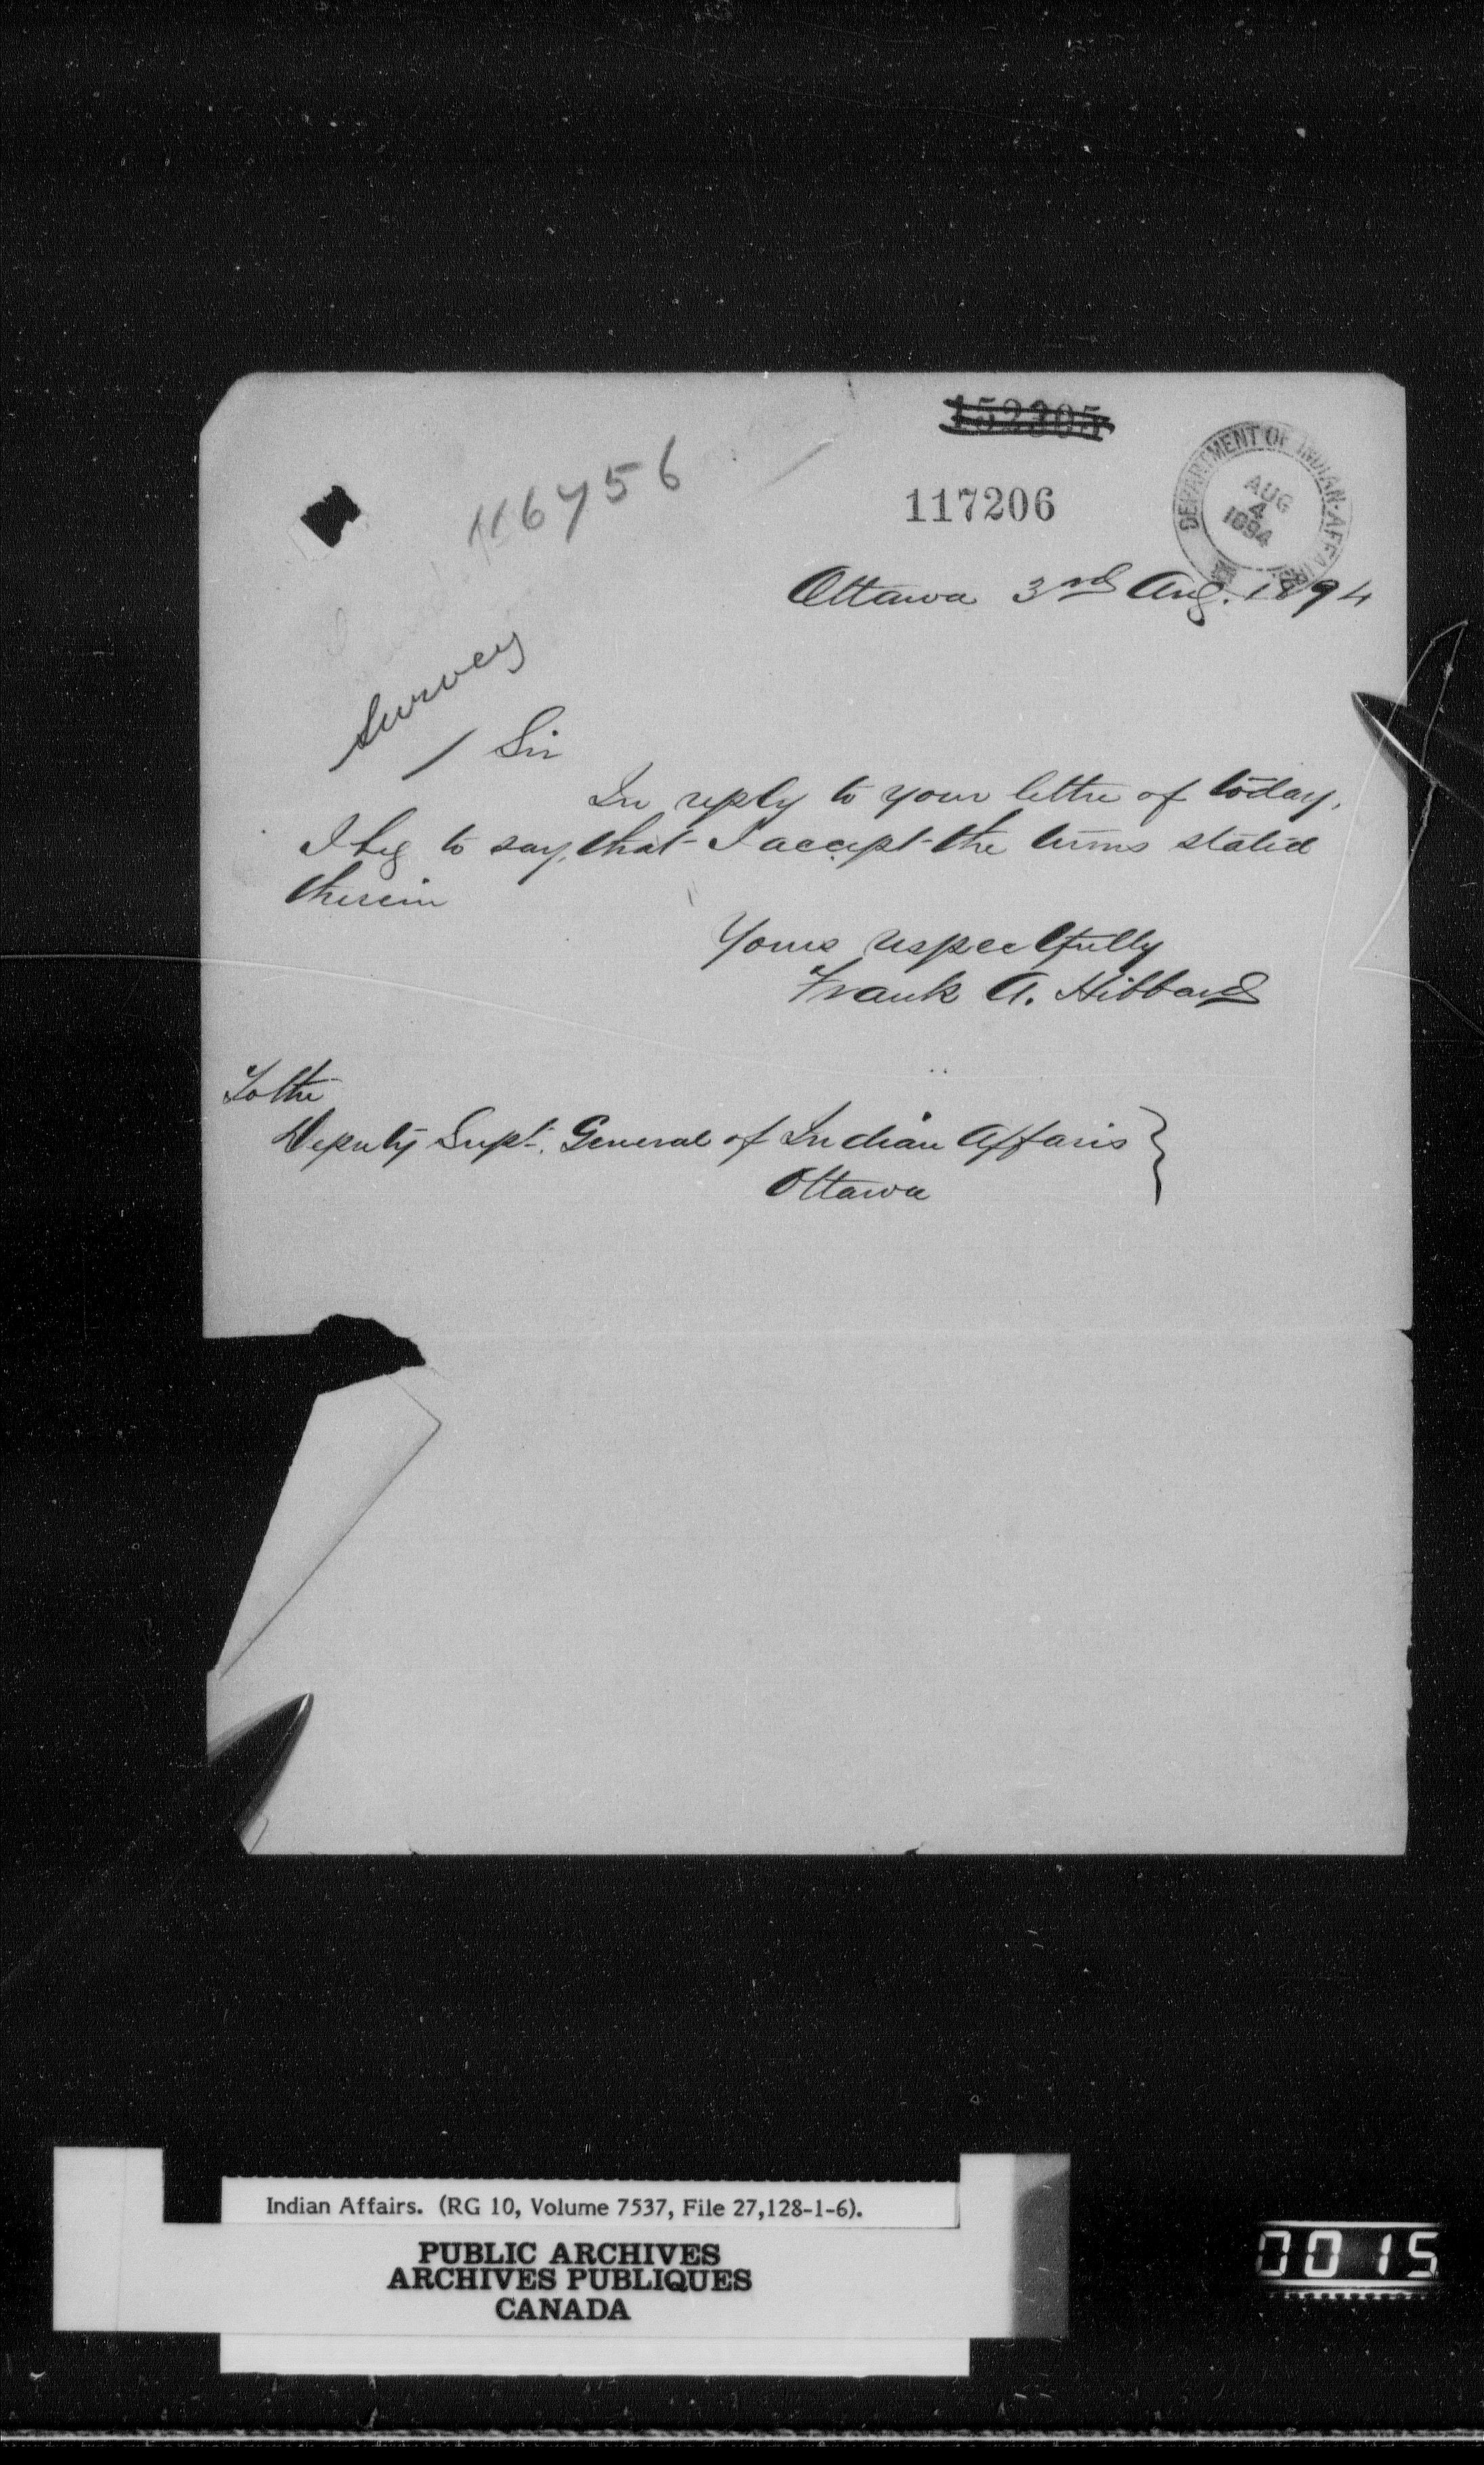 152305
116756
117206
DEPARTMENT OF INDIAN AFFAIRS
AUG
4
1894
Ottawa 3rd Aug. 1894
Survey
Sir
In reply to your letter of today,
I beg to say, that I accept the terms stated
therein
Yours respectfully
Frank A. Hibbard
To the
Deputy Supt. General of Indian Affairs
Ottawa
Indian Affairs. (RG 10, Volume 7537, File 27,128-1-6).
PUBLIC ARCHIVES
ARCHIVES PUBLIQUES
CANADA
0015